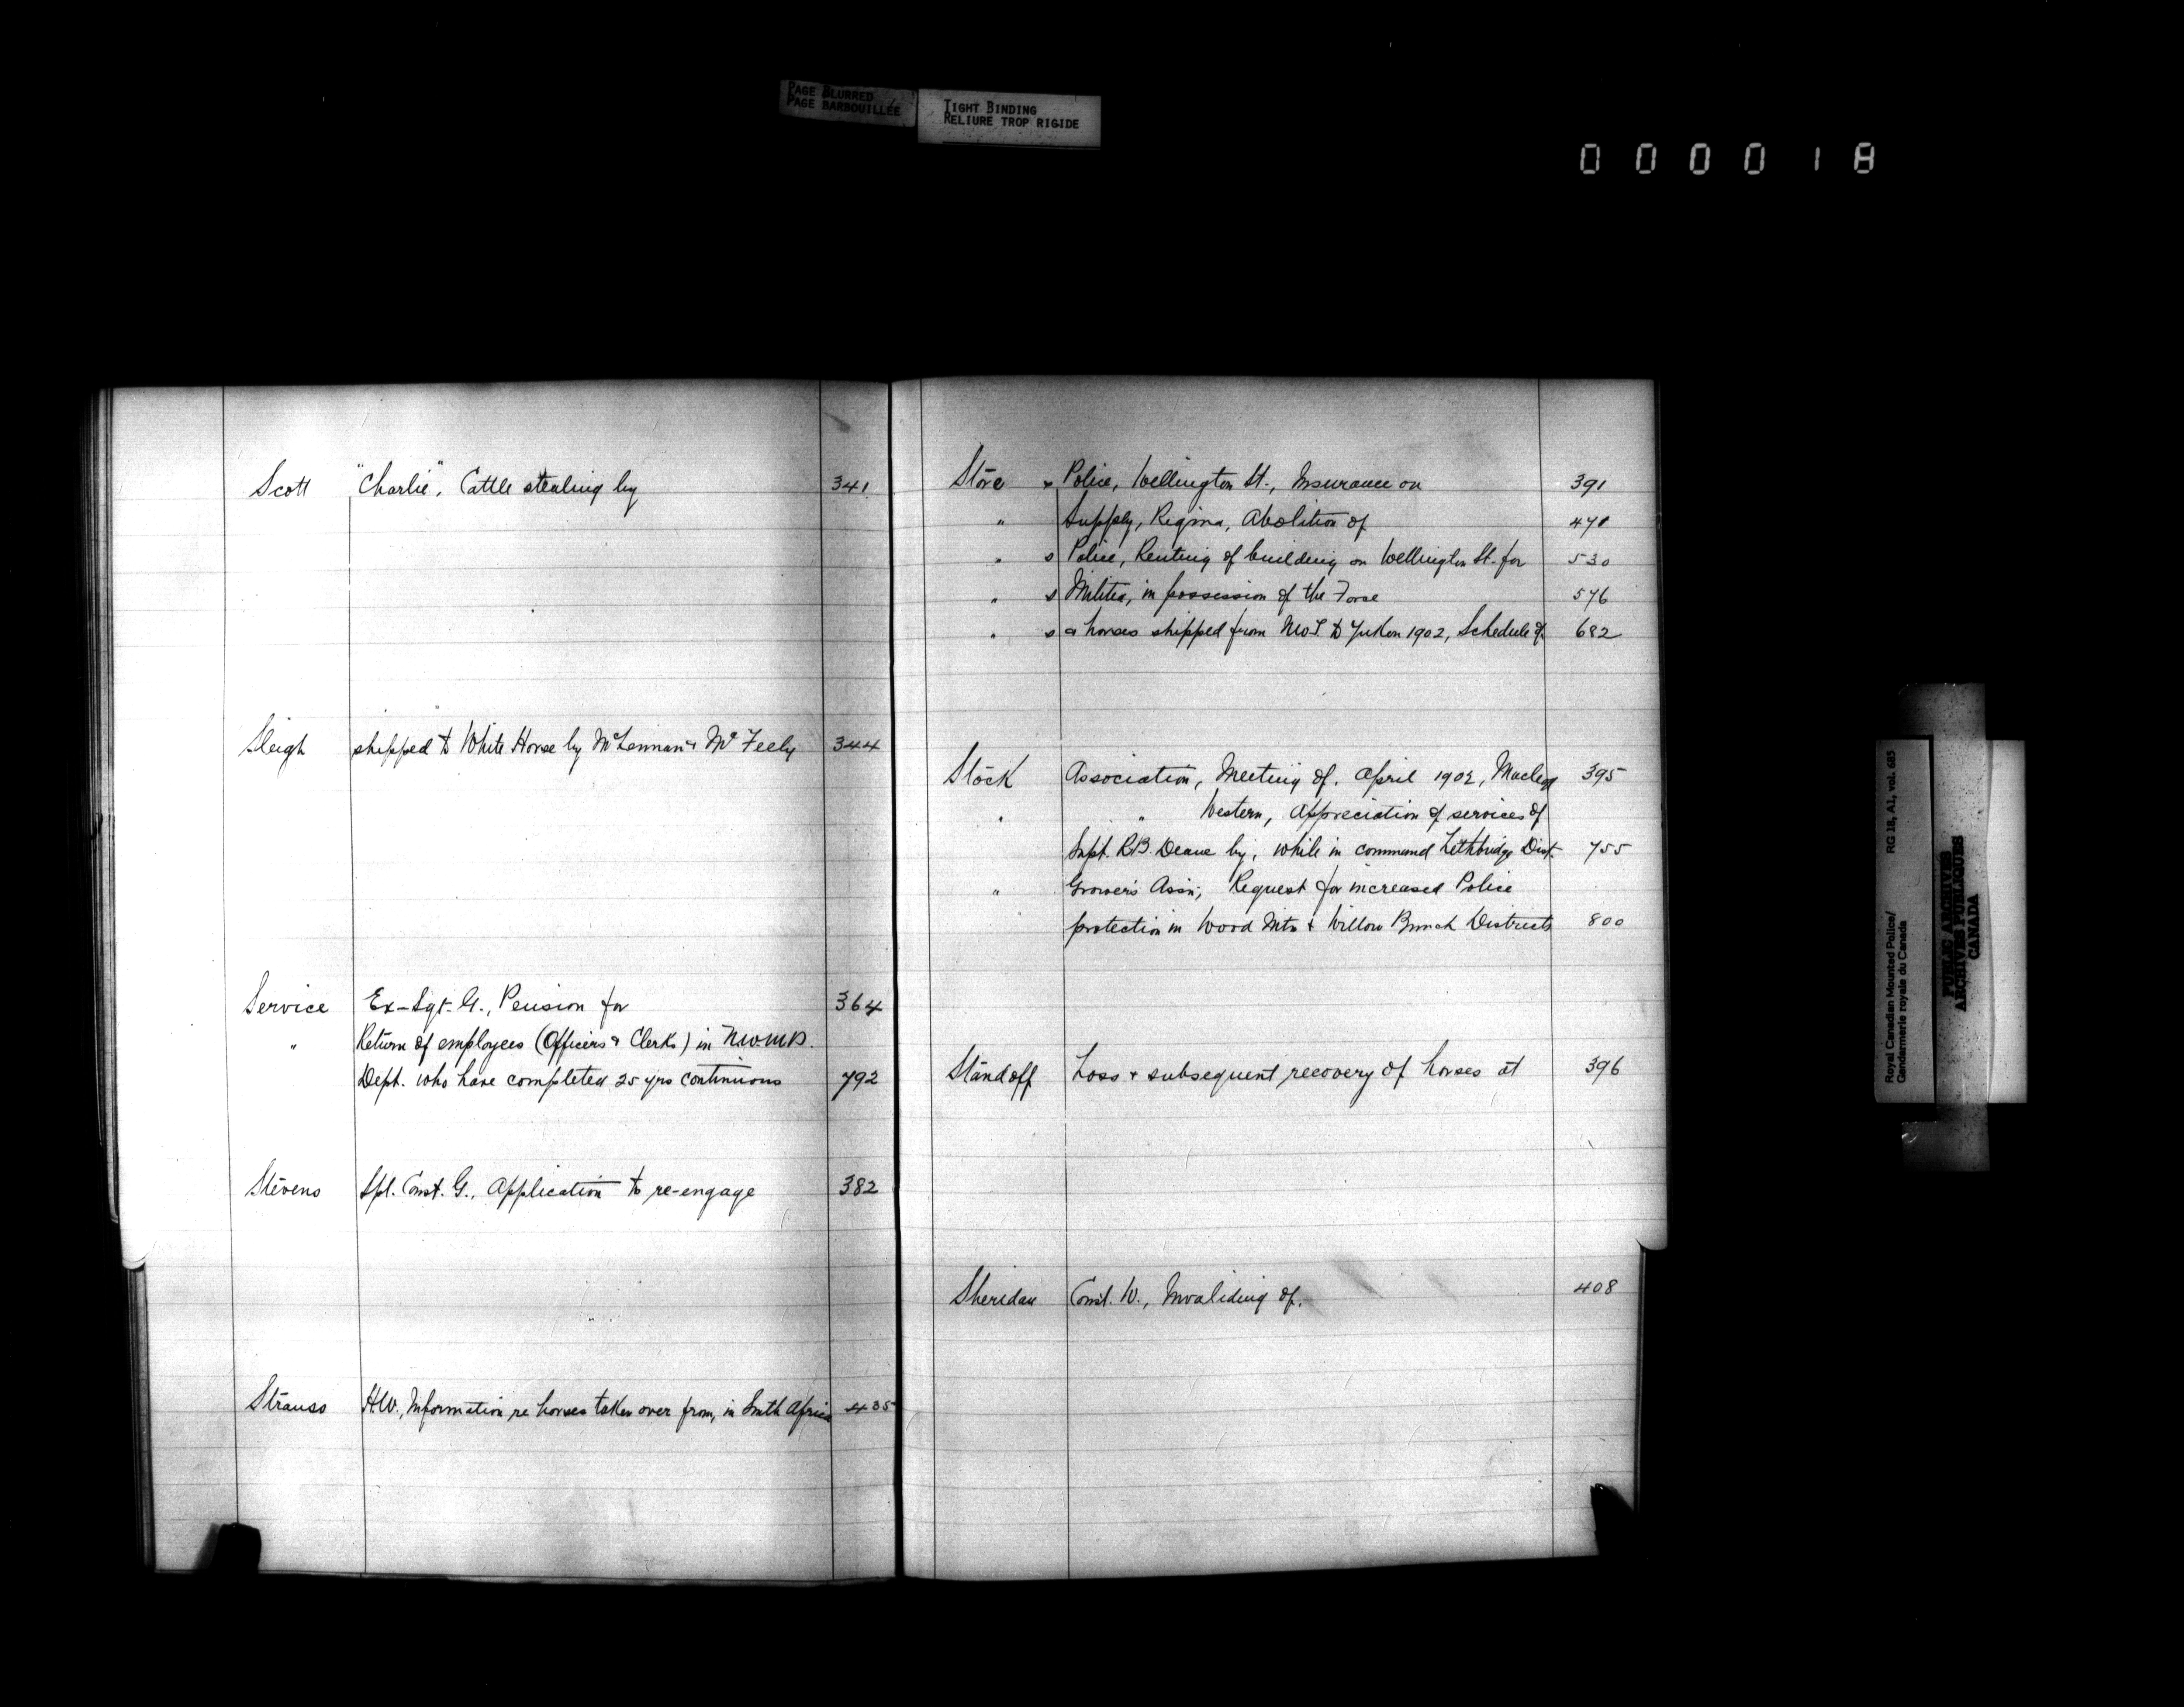 PAGE BLURRED
PAGE BARBOUILLÉE
TIGHT BINDING
RELIURE TROP RIGIDE
000018
Scott "Charlie", Cattle stealing by 341
Sleigh shipped to White Horse by McLennan & McFeely 344
Service Ex-Sgt. G., Pension for 364
" Return of employees (Officers & Clerks) in N.W.M.P.
Dept. who have completed 25 yrs continuous 792
Stevens Spl. Const. G., Application to re-engage 382
Strauss H.W., Information re horses taken over from, in South Africa 435
Store s Police, Wellington St., Insurance on 391
" Supply, Regina, Abolition of 471
" s Police, Renting of building on Wellington St. for 530
" s Militia, in possession of the Force 576
" s & horses shipped from NWT to Yukon 1902, Schedule of 682
Stock Association, Meeting of, April 1902, Macleod 395
" " Western, Appreciation of services of
Supt. R.B. Deane by, while in command Lethbridge Dist. 755
" Grower's Assn; Request for increased Police
protection in Wood Mtn & Willow Bunch Districts 800
Standoff Loss & subsequent recovery of horses at 396
Sheridan Const. W., Invaliding of. 408
Royal Canadian Mounted Police/
Gendarmerie royale du Canada
RG 18, A1, vol. 685
PUBLIC ARCHIVES
ARCHIVES PUBLIQUES
CANADA